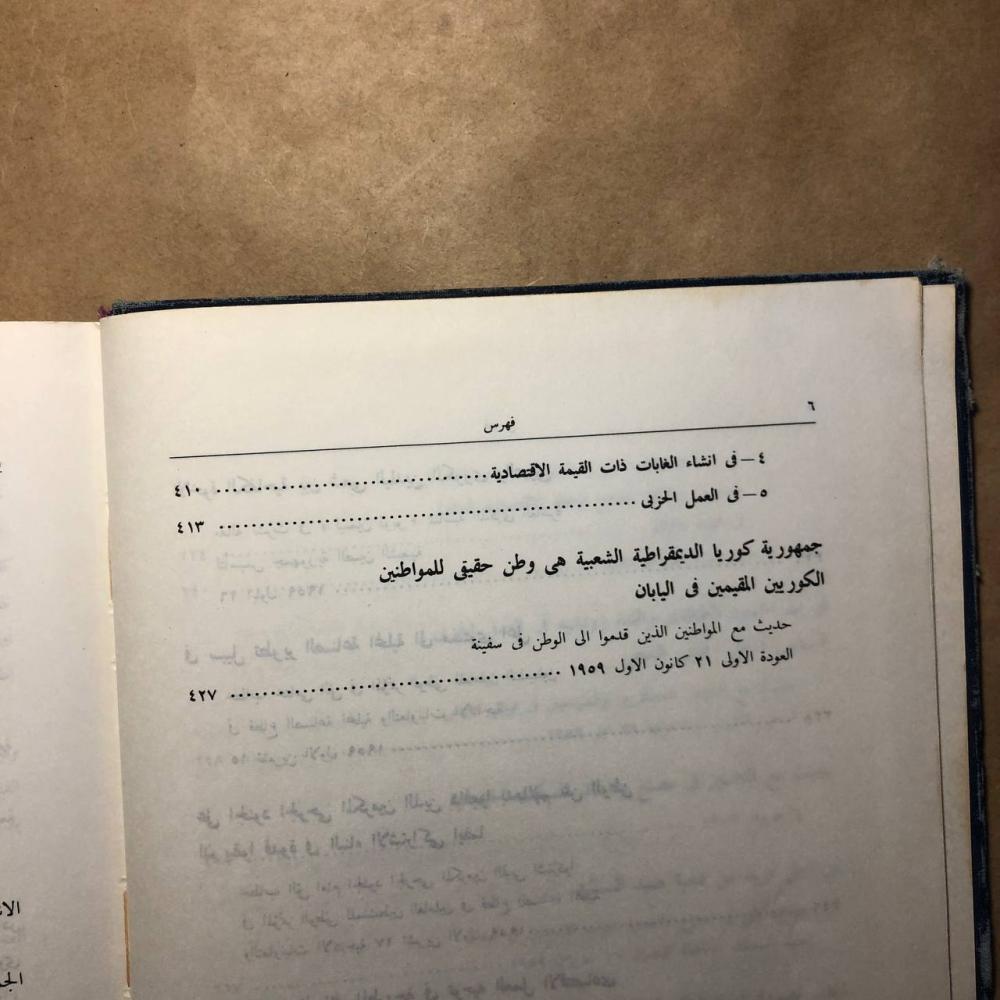 ٦
فهرس
٤ – فى انشاء الغابات ذات القيمة الاقتصادية ........................ ٤١٠
٥ – فى العمل الحزبى ........................................ ٤١٣
جمهورية كوريا الديمقراطية الشعبية هى وطن حقيقى للمواطنين
الكوريين المقيمين فى اليابان
حديث مع المواطنين الذين قدموا الى الوطن فى سفينة
العودة الاولى ٢١ كانون الاول ١٩٥٩ ........................................ ٤٢٧